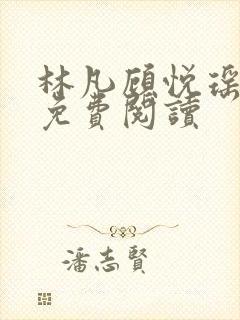 林凡顾悦瑶
免費閱讀
潘志賢